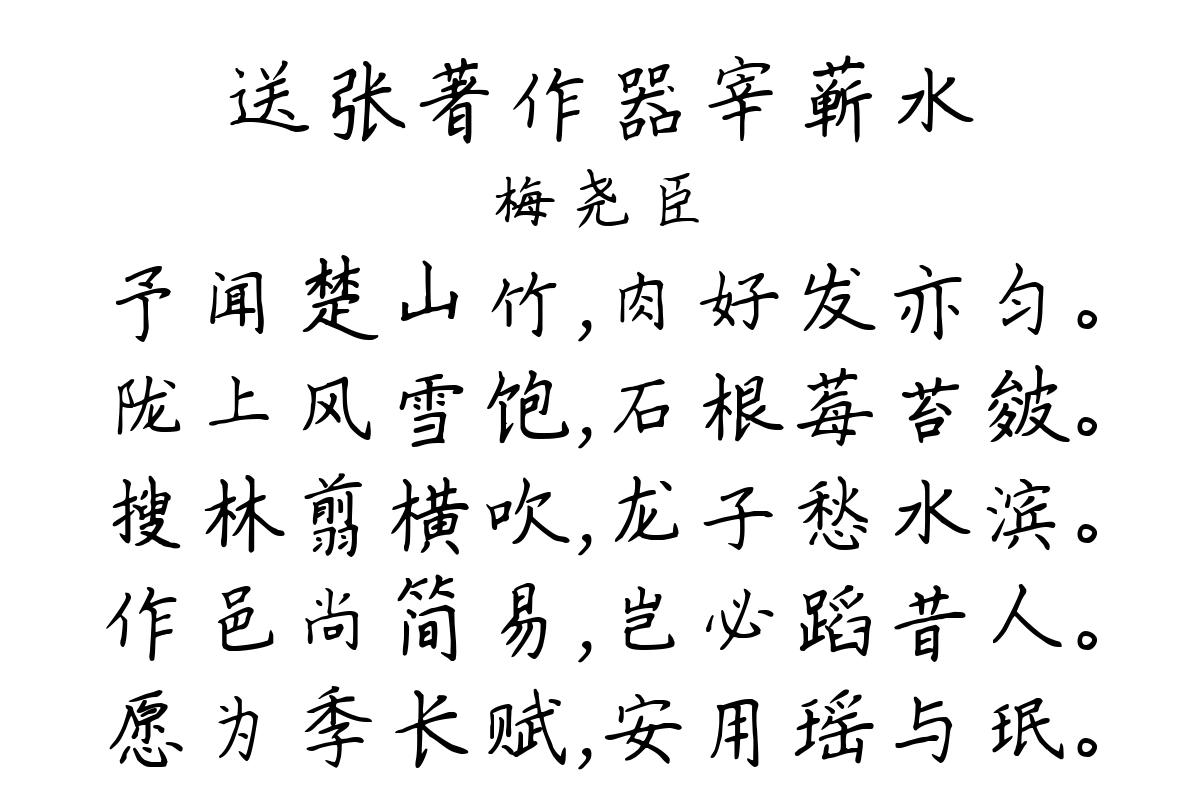 送张著作器宰蕲水
梅尧臣
予闻楚山竹,肉好发亦匀。
陇上风雪饱,石根莓苔皴。
搜林剪横吹,龙子愁水滨。
作邑尚简易,岂必蹈昔人。
愿为季长赋,安用瑶与珉。